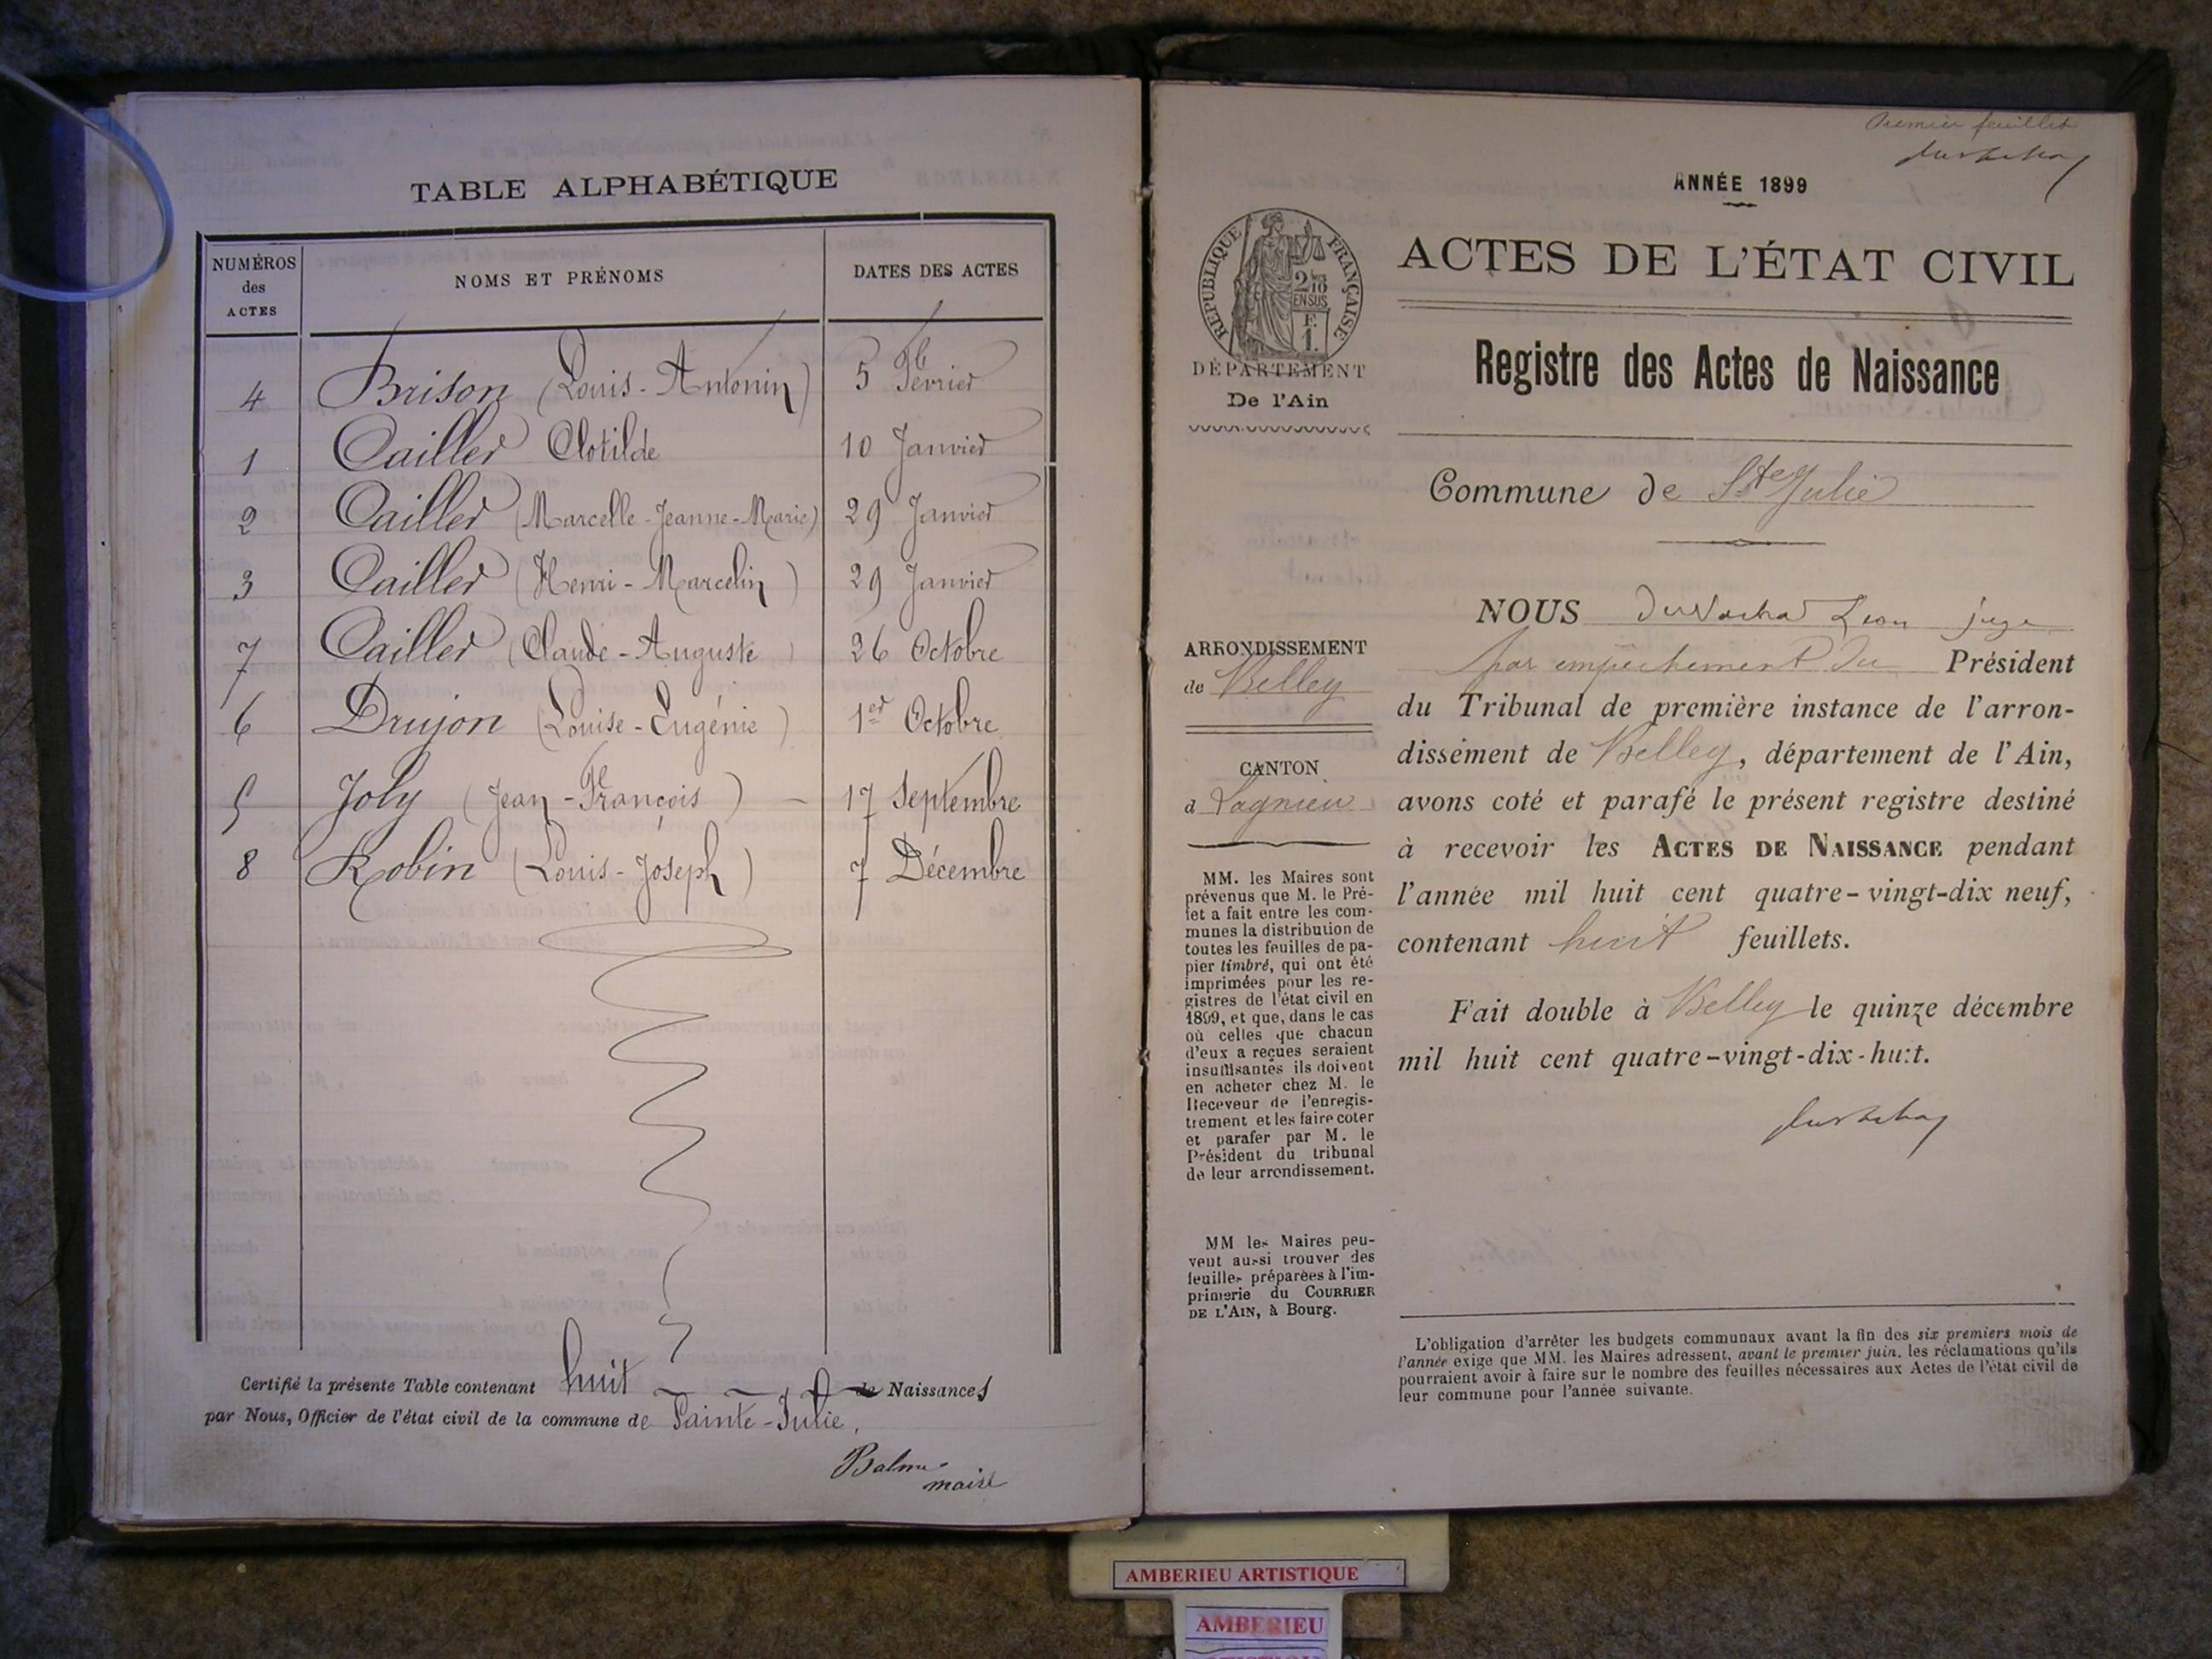 TABLE ALPHABÉTIQUE
NUMÉROS des ACTES
NOMS ET PRÉNOMS
DATES DES ACTES
4 Brison (Louis-Antonin) 5 Février
1 Cailler Clotilde 10 Janvier
2 Cailler (Marcelle-Jeanne-Marie) 29 Janvier
3 Cailler (Henri-Marcelin) 29 Janvier
7 Cailler (Claude-Auguste) 26 Octobre
6 Drujon (Louise-Eugénie) 1er Octobre
5 Joly (Jean-François) - 17 Septembre
8 Robin (Louis-Joseph) 7 Décembre
Certifié la présente Table contenant huit de Naissances
par Nous, Officier de l'état civil de la commune de Sainte-Julie.
maire
Premier feuillet
ANNÉE 1899
RÉPUBLIQUE FRANÇAISE
2/10
EN SUS
F.
1.
DÉPARTEMENT
De l'Ain
ACTES DE L'ÉTAT CIVIL
Registre des Actes de Naissance
Commune de Ste Julie
ARRONDISSEMENT
de Belley
CANTON
d Lagnieu
MM. les Maires sont
prévenus que M. le Pré-
fet a fait entre les com-
munes la distribution de
toutes les feuilles de pa-
pier timbré, qui ont été
imprimées pour les re-
gistres de l'état civil en
1899, et que, dans le cas
où celles que chacun
d'eux a reçues seraient
insuffisantes ils doivent
en acheter chez M. le
Receveur de l'enregis-
trement et les faire coter
et parafer par M. le
Président du tribunal
de leur arrondissement.
MM les Maires peu-
vent aussi trouver des
feuilles préparées à l'im-
primerie du COURRIER
DE L'AIN, à Bourg.
NOUS Léon juge
par empêchement du Président
du Tribunal de première instance de l'arron-
dissement de Belley, département de l'Ain,
avons coté et parafé le présent registre destiné
à recevoir les ACTES DE NAISSANCE pendant
l'année mil huit cent quatre-vingt-dix neuf,
contenant huit feuillets.
Fait double à Belley le quinze décembre
mil huit cent quatre-vingt-dix-huit.
L'obligation d'arrêter les budgets communaux avant la fin des six premiers mois de
l'année exige que MM. les Maires adressent, avant le premier juin, les réclamations qu'ils
pourraient avoir à faire sur le nombre des feuilles nécessaires aux Actes de l'état civil de
leur commune pour l'année suivante.
AMBERIEU ARTISTIQUE
AMBERIEU